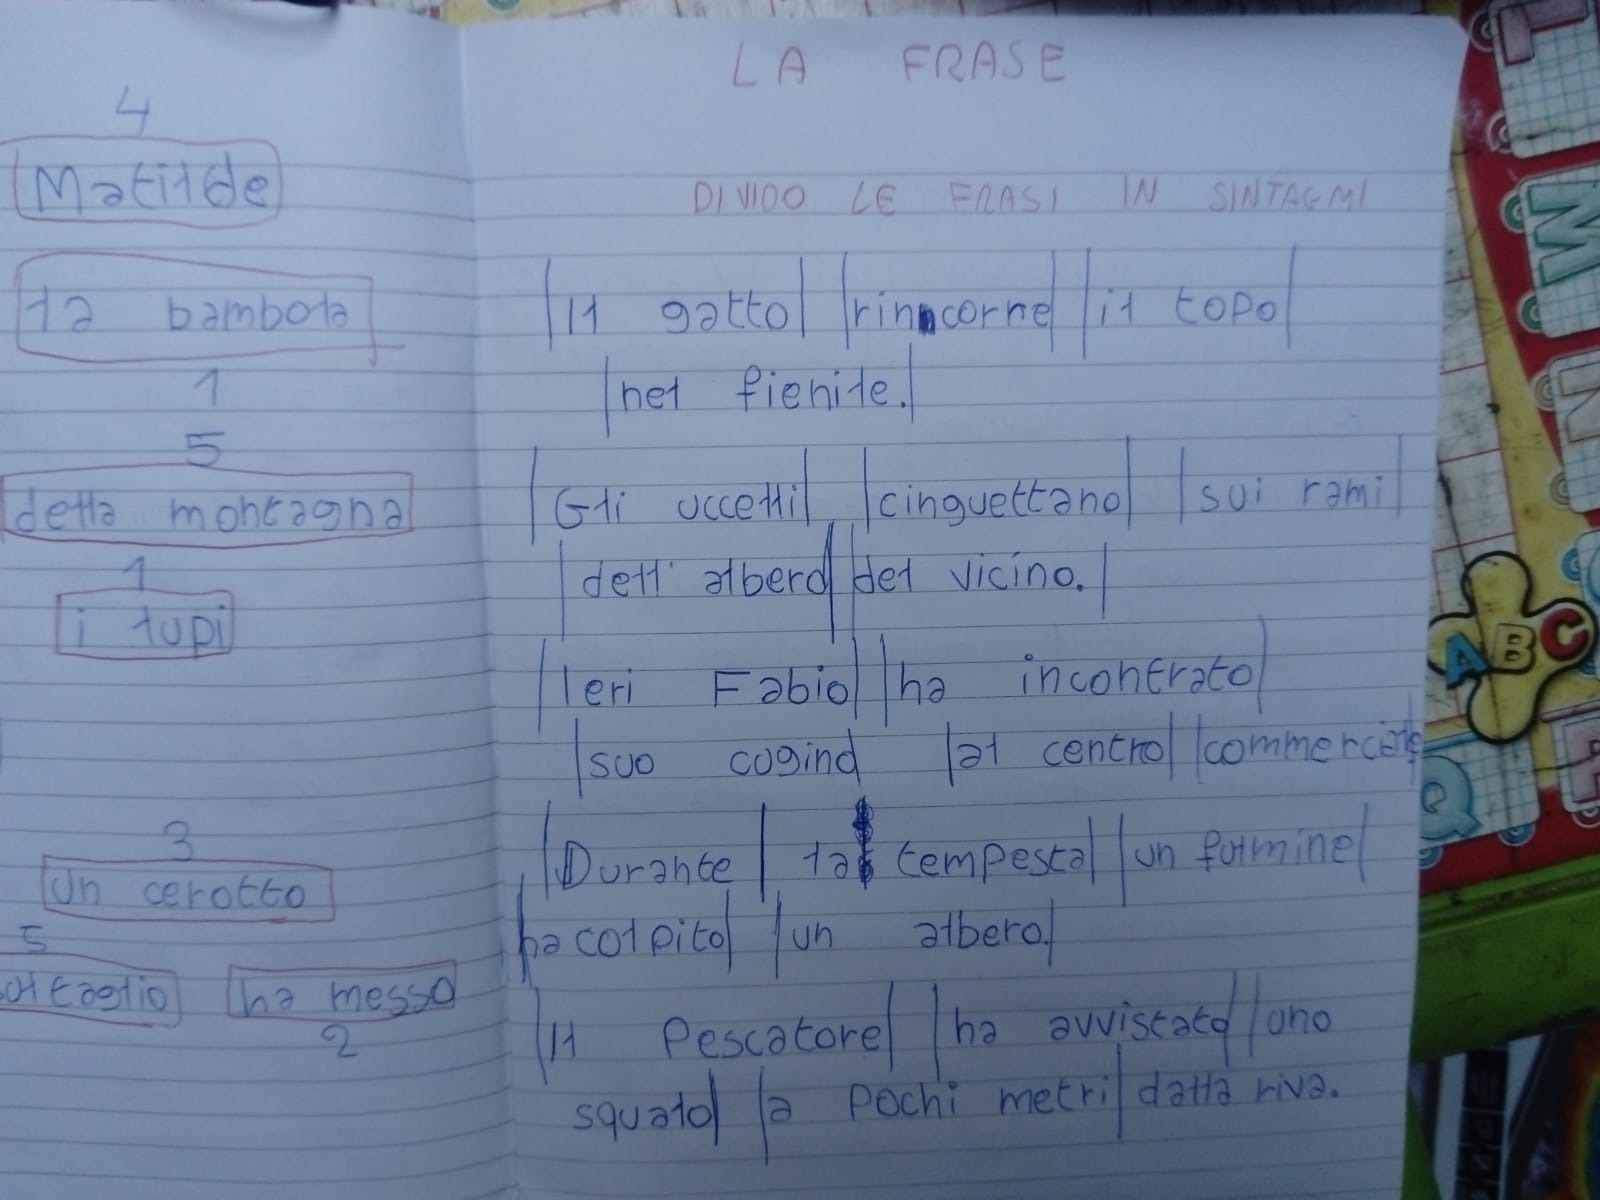 4
Matilde
la bambola
1
5
della montagna
1
i lupi
3
un cerotto
5
ha messo
2
LA FRASE
DIVIDO LE FRASI IN SINTAGMI
|Il gatto| |rincorre| |il topo|
|nel fienile.|
|Gli uccelli| |cinguettano| |sui rami|
|dell'albero| |del vicino.|
|Ieri Fabio| |ha incontrato|
|suo cugino| |al centro| |commerciale
|Durante| la tempesta| |un fulmine|
|ha colpito| |un albero.|
|Il Pescatore| |ha avvistato| |uno
squalo| |a pochi metri| dalla riva.
ABC